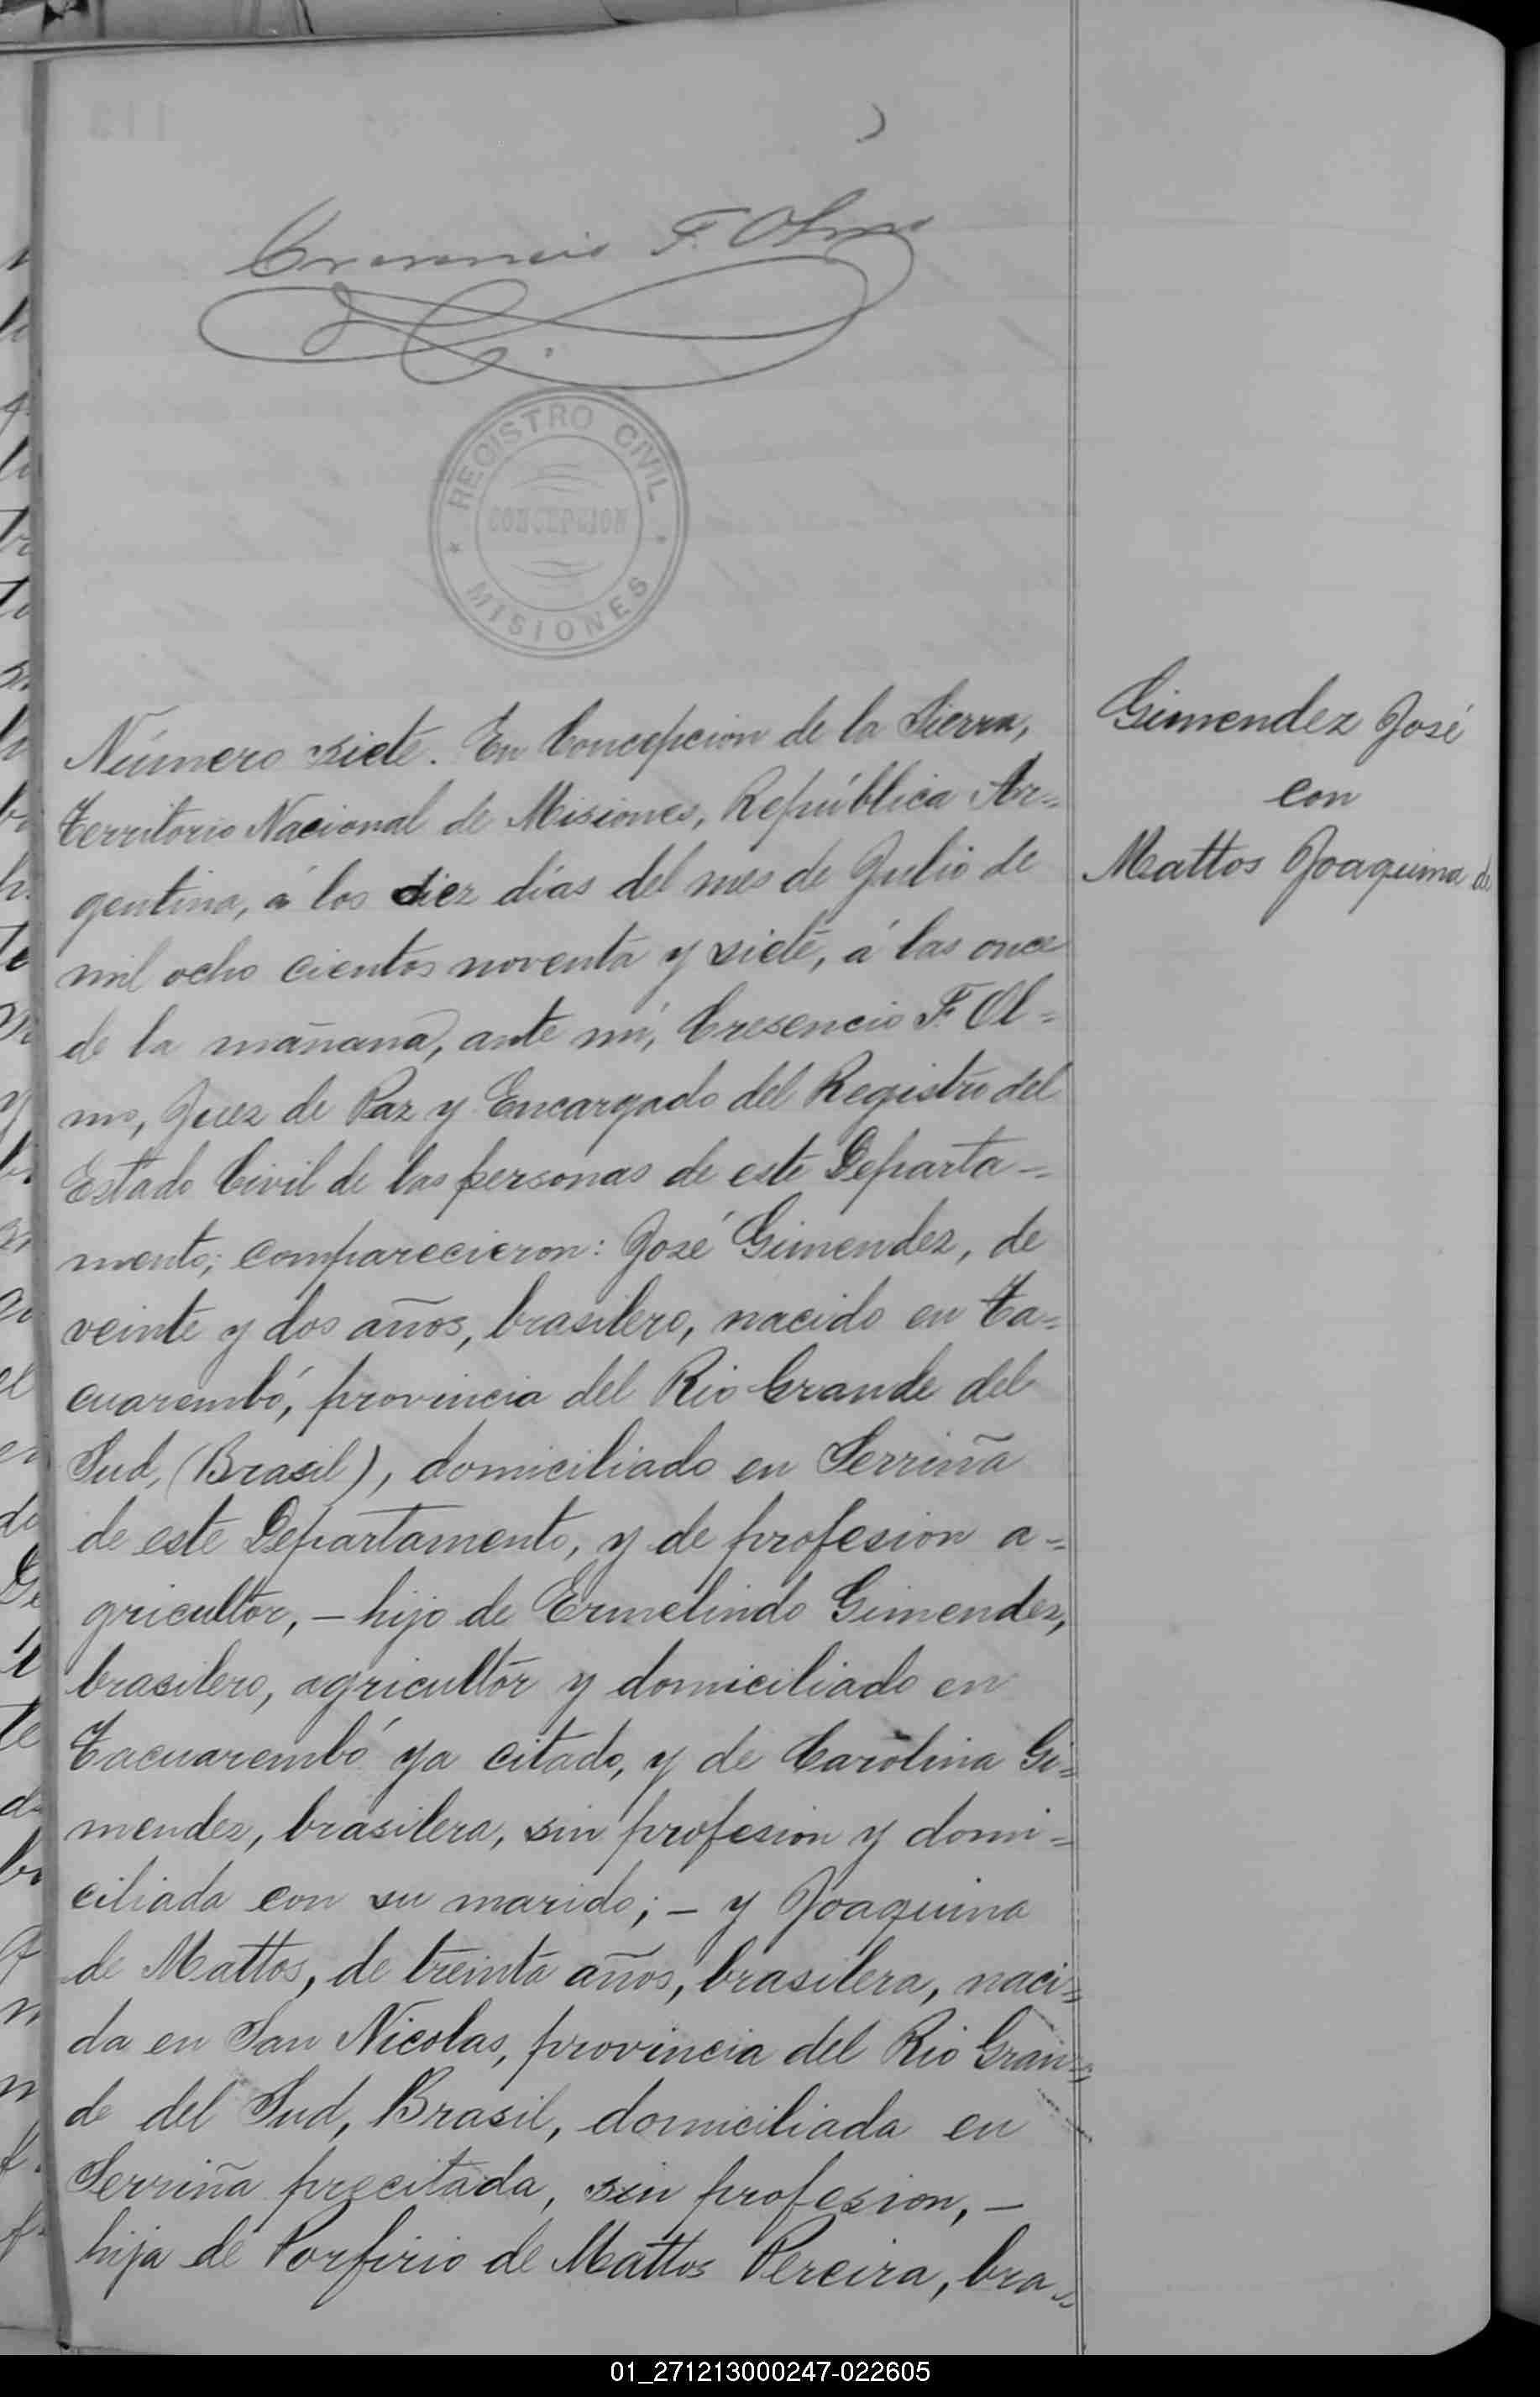 Cresencio F. Olmo
REGISTRO CIVIL
CONCEPCION
MISIONES
Número siete. En Concepcion de la Sierra,
Territorio Nacional de Misiones, República Ar=
gentina, á los diez días del mes de Julio de
mil ocho cientos noventa y siete, á las once
de la mañana, ante mí, Cresencio F. Ol=
mo, Juez de Paz y Encargado del Registro del
Estado Civil de las personas de este Departa=
mento; comparecieron: José Gimendez, de
veinte y dos años, brasilero, nacido en Ta=
cuarembó, provincia del Rio Grande del
Sud, (Brasil), domiciliado en Serriña
de este Departamento, y de profesion a=
gricultor, – hijo de Ermelindo Gimendez,
brasilero, agricultor y domiciliado en
Tacuarembó ya citado, y de Carolina Gi=
mendez, brasilera, sin profesion y domi=
ciliada con su marido; – y Joaquina
de Mattos, de treinta años, brasilera, naci=
da en San Nicolas, provincia del Rio Gran=
de del Sud, Brasil, domiciliada en
Serriña precitada, sin profesion, –
hija de Porfirio de Mattos Pereira, bra=
Gimendez José
con
Mattos Joaquina de
01_271213000247-022605